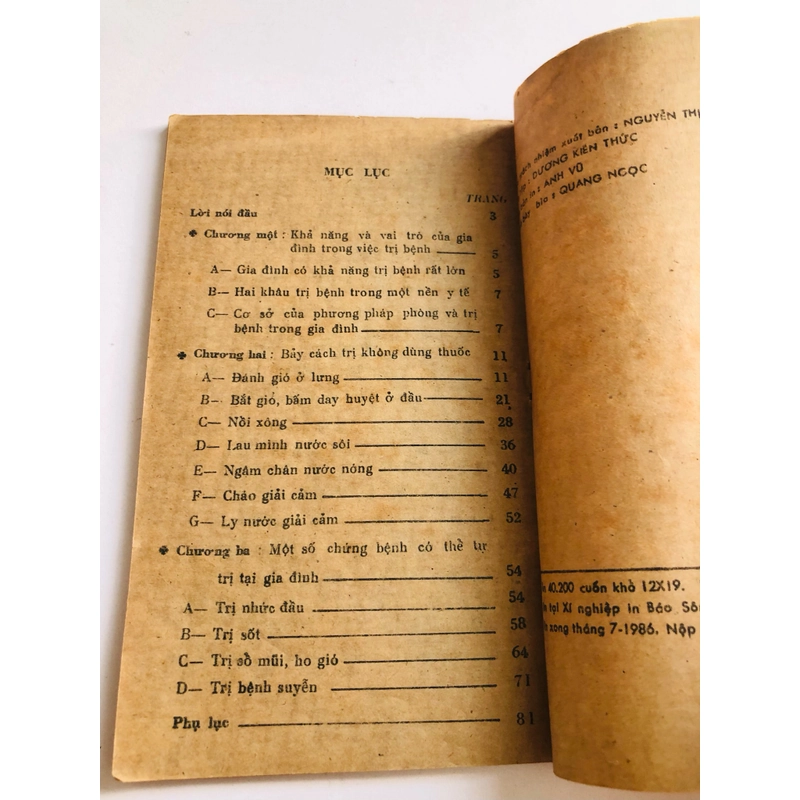 MỤC LỤC
TRANG
Lời nói đầu 3
✤ Chương một : Khả năng và vai trò của gia
đình trong việc trị bệnh — 5
A— Gia đình có khả năng trị bệnh rất lớn 5
B— Hai khâu trị bệnh trong một nền y tế 7
C— Cơ sở của phương pháp phòng và trị
bệnh trong gia đình — 7
✤ Chương hai : Bảy cách trị không dùng thuốc 11
A— Đánh gió ở lưng — 11
B— Bắt gió, bấm day huyệt ở đầu — 21
C— Nồi xông — 28
D— Lau mình nước sôi — 36
E— Ngâm chân nước nóng — 40
F— Cháo giải cảm — 47
G— Ly nước giải cảm — 52
✤ Chương ba : Một số chứng bệnh có thể tự
trị tại gia đình — 54
A— Trị nhức đầu — 54
B— Trị sốt — 58
C— Trị sổ mũi, ho gió — 64
D— Trị bệnh suyễn — 71
Phụ lục — 81
nhiệm xuất bản : NGUYỄN
: DƯƠNG KIẾN THỨC
in : ANH VŨ
bìa : QUANG NGỌC
40.200 cuốn khổ 12X19.
tại Xí nghiệp in Báo
xong tháng 7-1986. Nộp